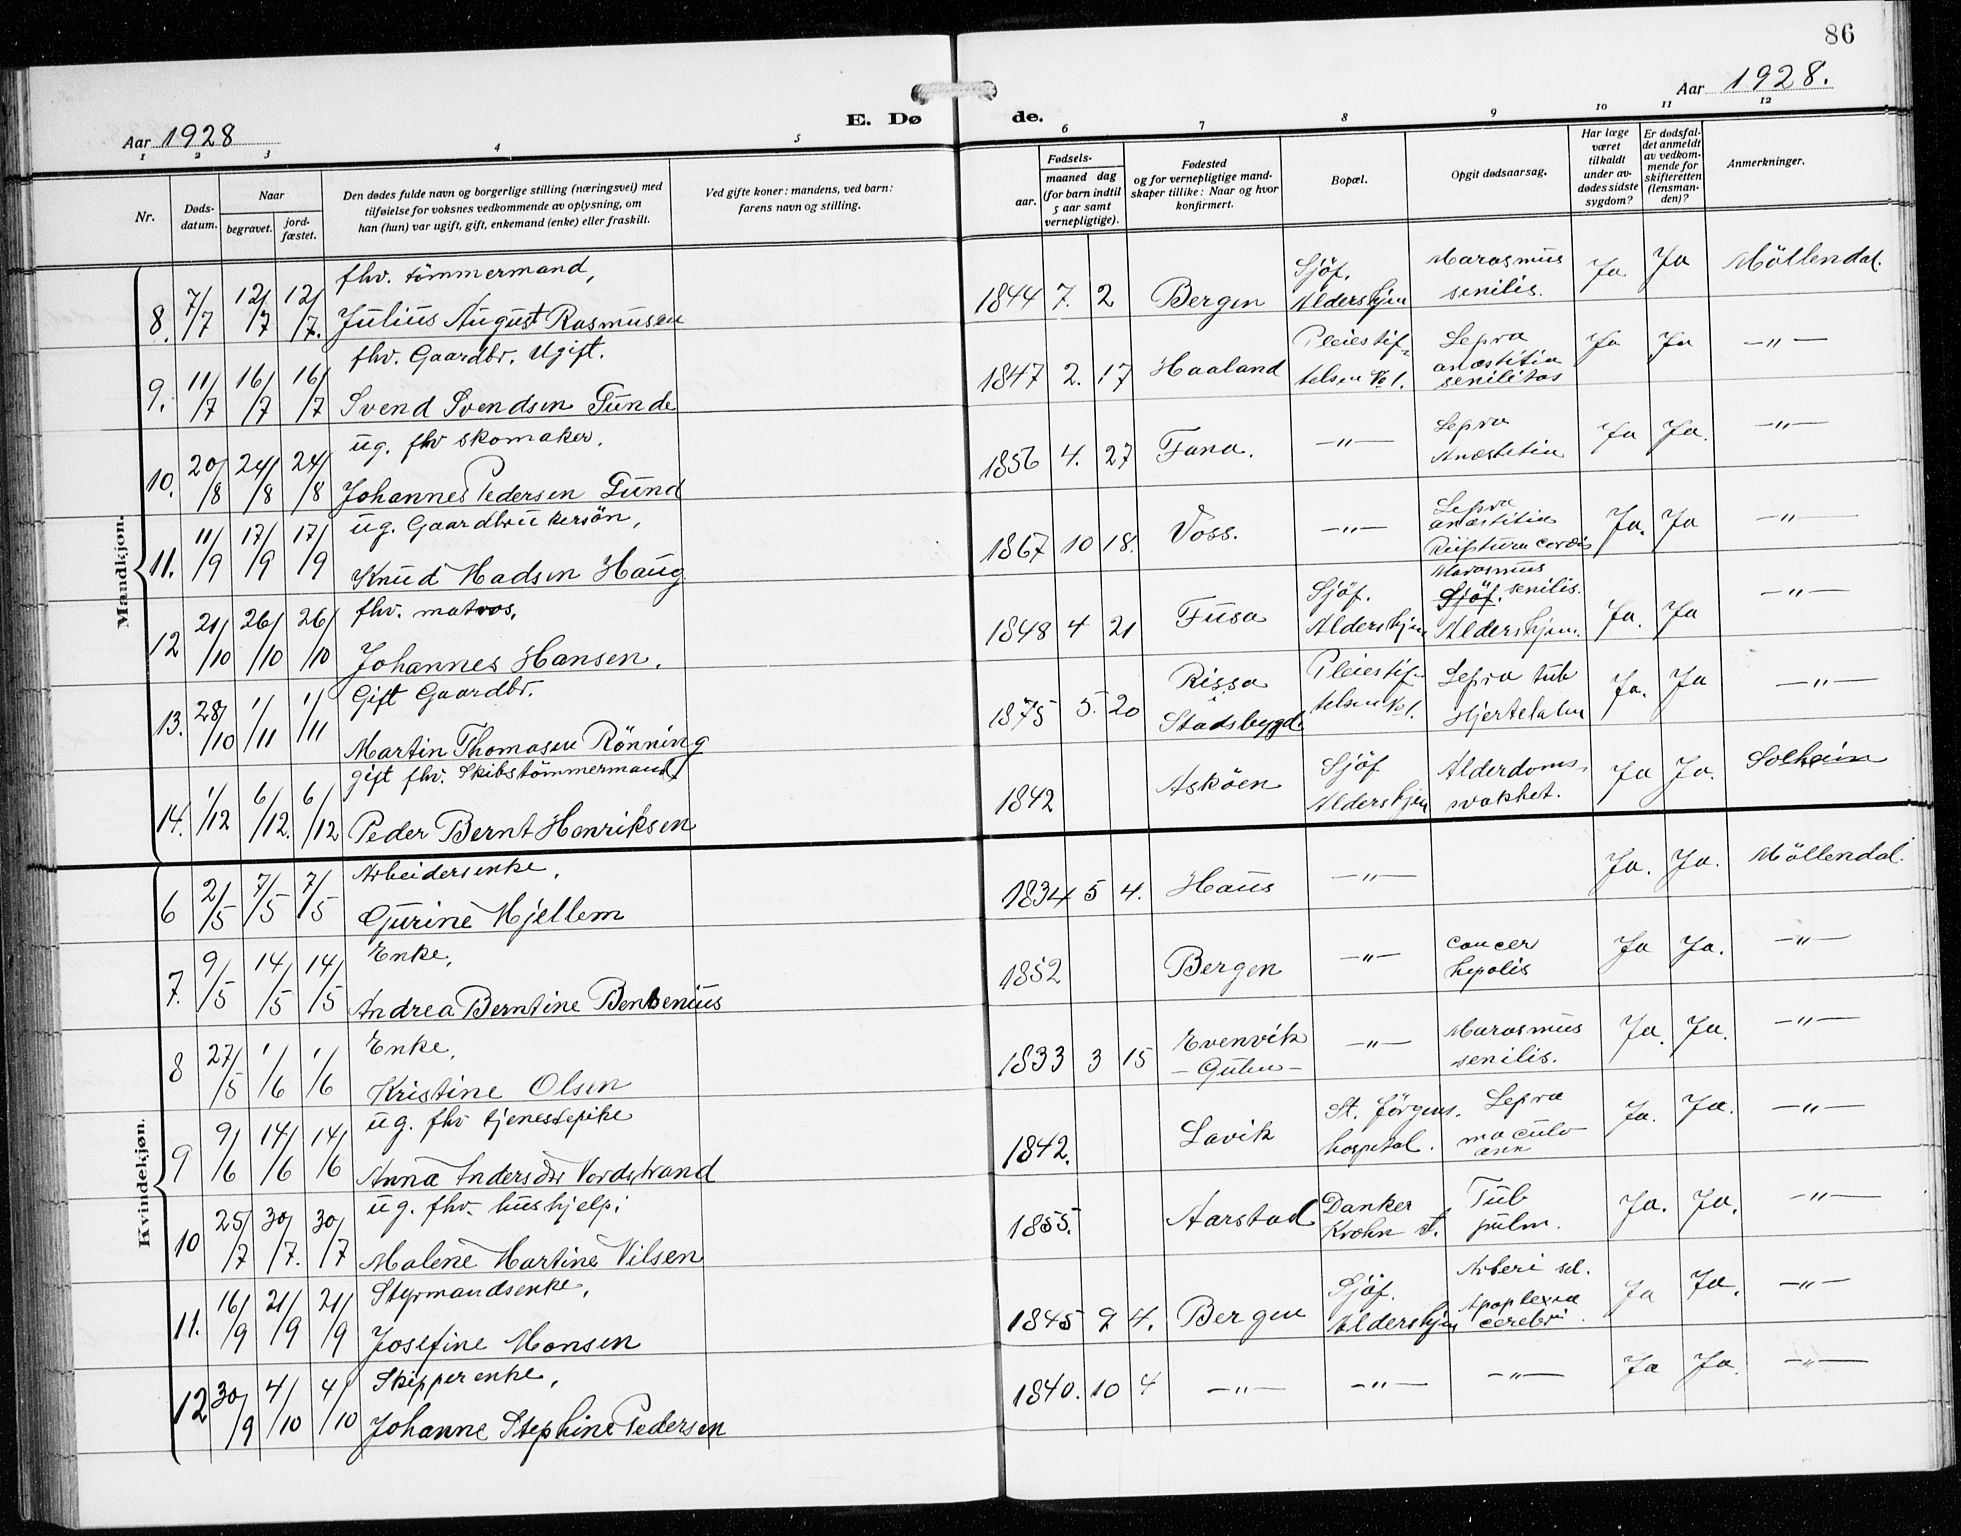 86
Aar 1928
E. Dø
de.
Aar 1928.
1 2 3 4 5 6 7 8 9 10 11 12
Nr.
Døds-
datum.
Naar
begravet.
jord-
fæstet.
Den dødes fulde navn og borgerlige stilling (næringsvei) med
tilføielse for voksnes vedkommende av oplysning, om
han (hun) var ugift, gift, enkemand (enke) eller fraskilt.
Ved gifte koner: mandens, ved barn:
farens navn og stilling.
Fødsels-
aar.
maaned dag
(for barn indtil
5 aar samt
vernepligtige).
Fødested
og for vernepligtige mand-
skaper tillike: Naar og hvor
konfirmert.
Bopæl.
Opgit dødsaarsag.
Har læge
været
tilkaldt
under av-
dødes sidste
sygdom?
Er dødsfal-
det anmeldt
av vedkom-
mende for
skifteretten
(lensman-
den)?
Anmerkninger.
Mandkjøn.
fhv. tömmermand,
8. 7/7 12/7 12/7. Julius August Rasmusen
1844 7. 2 Bergen
Sjöf.
Aldershjem
Marasmus
senilis.
Ja Ja Möllendal.
fhv. Gaardbr. Ugift.
9. 11/7 16/7 16/7 Svend Svendsen Tunde
1847 2. 17 Haaland
Pleiestif-
telsen No 1.
Lepra
anæstitia
senilitas
Ja Ja —"—
ug. fhv skomaker.
10. 20/8 24/8 24/8 Johannes Pedersen Tund
1856 4. 27 Fana. —"—
Lepra
Anæstitia
Ja Ja. —"—
ug. Gaardbrukersön,
11. 11/9 17/9 17/9 Knud Madsen Haug
1867 10 18. Voss. —"—
Lepra
anæstitia
Ruptura cordis
Ja. Ja —"—
fhv. matros.
12 21/10 26/10 26/10 Johannes Hansen.
1848 4 21 Fusa
Sjöf.
Aldershjem
Marasmus
Sjöf. senilis.
Aldershjem.
Ja. Ja —"—
Gift Gaardbr.
13. 28/10 1/11 1/11 Martin Thomasen Rönning
1875 5. 20
Rissa
Stadsbygd.
Pleiestif-
telsen No 1.
Lepra tub
Hjertelam
Ja. Ja —"—
gift fhv. Skibstömmermand
14. 1/12 6/12. 6/12 Peder Bernt Henriksen
1842 Asköen
Sjöf
Aldershjem
Alderdoms,
svakhet.
Ja Ja. Solheim
Kvindekjøn.
Arbeidersenke,
6 2/5 7/5 7/5 Gurine Hjellem
1834 5 4. Haus —"— Ja. Ja. Möllendal.
Enke,
7. 9/5 14/5 14/5 Andrea Berntine Bentzenius
1852 Bergen —"—
cancer
hepatis
Ja Ja. —"—
Enke,
8 27/5 1/6 1/6 Kristine Olsen
1833 3 15
Evenvik
— Gulen —
—"—
Marasmus
senilis.
Ja. Ja. —"—
ug. fhv tjenestepike
9 9/6 14/6 14/6 Anna Andersdtr Nordstrand
1842. Lavik
St. Jörgens.
hospital.
Lepra
maculo
ann
Ja. Ja. —"—
ug. fhv. hushjelp;
10 25/7 30/7. 30/7 Malene Martine Nilsen
1855. Aarstad
Danker
Krohn st.
Tub
pulm.
Ja. Ja. —"—
Styrmandsenke,
11. 16/9 21/9 21/9 Josefine Monsen
1845 9 4. Bergen
Sjöf.
Aldershjem
Arteri scl.
Apoplexia
cerebri.
Ja Ja. —"—
Skipperenke,
12 30/9 4/10 4/10 Johanne Stephine Pedersen
1840. 10 4 —"— —"— —"— Ja Ja. —"—